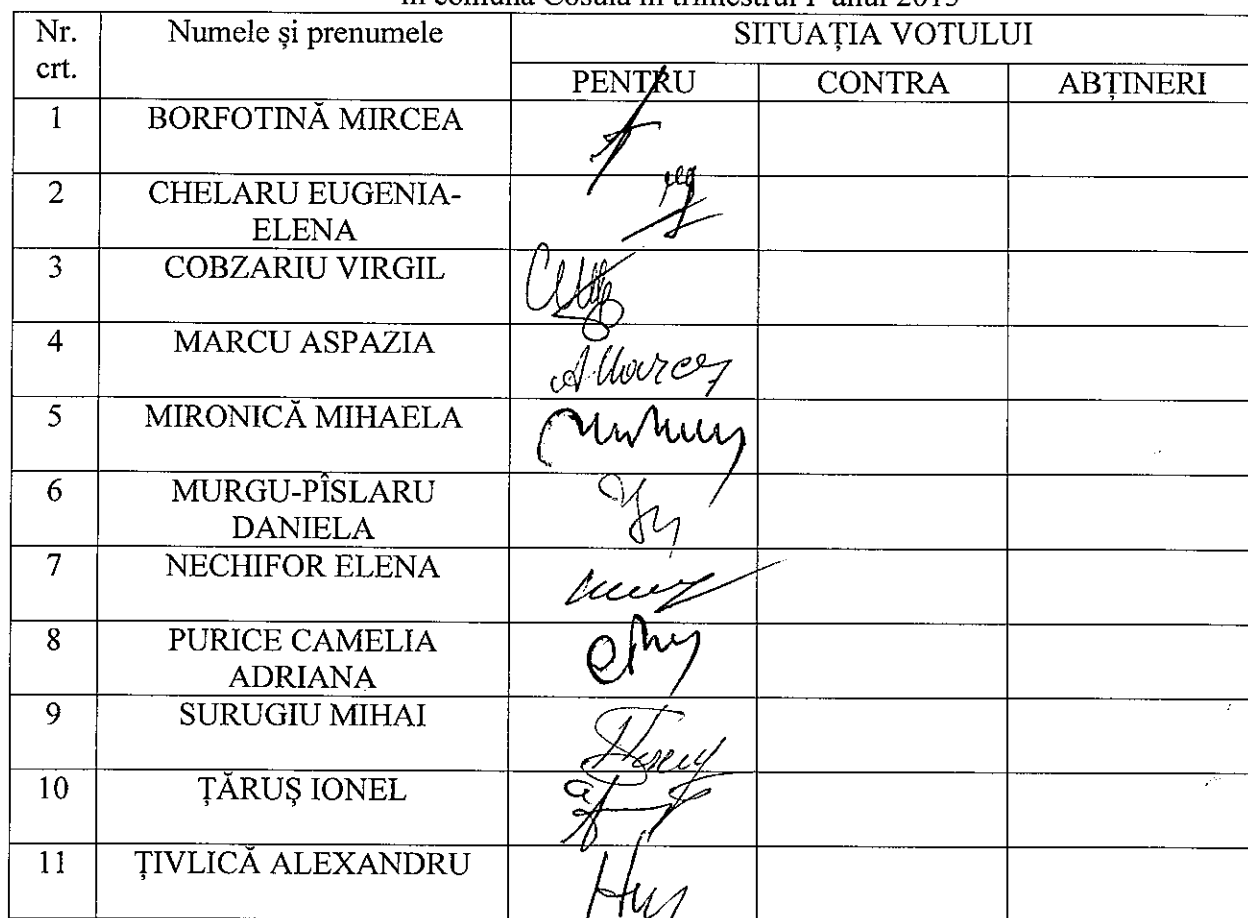 în comuna Coșula în trimestrul I anul 2015
Nr. crt. Numele și prenumele SITUAȚIA VOTULUI
PENTRU CONTRA ABȚINERI
1 BORFOTINĂ MIRCEA
2 CHELARU EUGENIA-
ELENA
3 COBZARIU VIRGIL
4 MARCU ASPAZIA
5 MIRONICĂ MIHAELA
6 MURGU-PÎSLARU
DANIELA
7 NECHIFOR ELENA
8 PURICE CAMELIA
ADRIANA
9 SURUGIU MIHAI
10 ȚĂRUȘ IONEL
11 ȚIVLICĂ ALEXANDRU